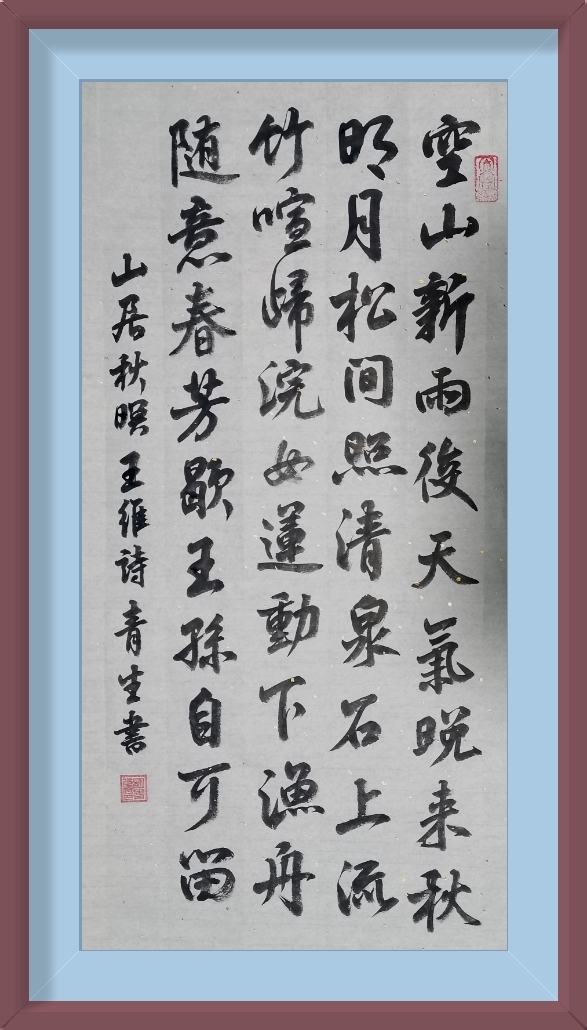 空山新雨後天氣晚来秋
明月松间照清泉石上流
竹喧歸浣女蓮動下漁舟
随意春芳歇王孫自可留
山居秋暝王維詩青生書